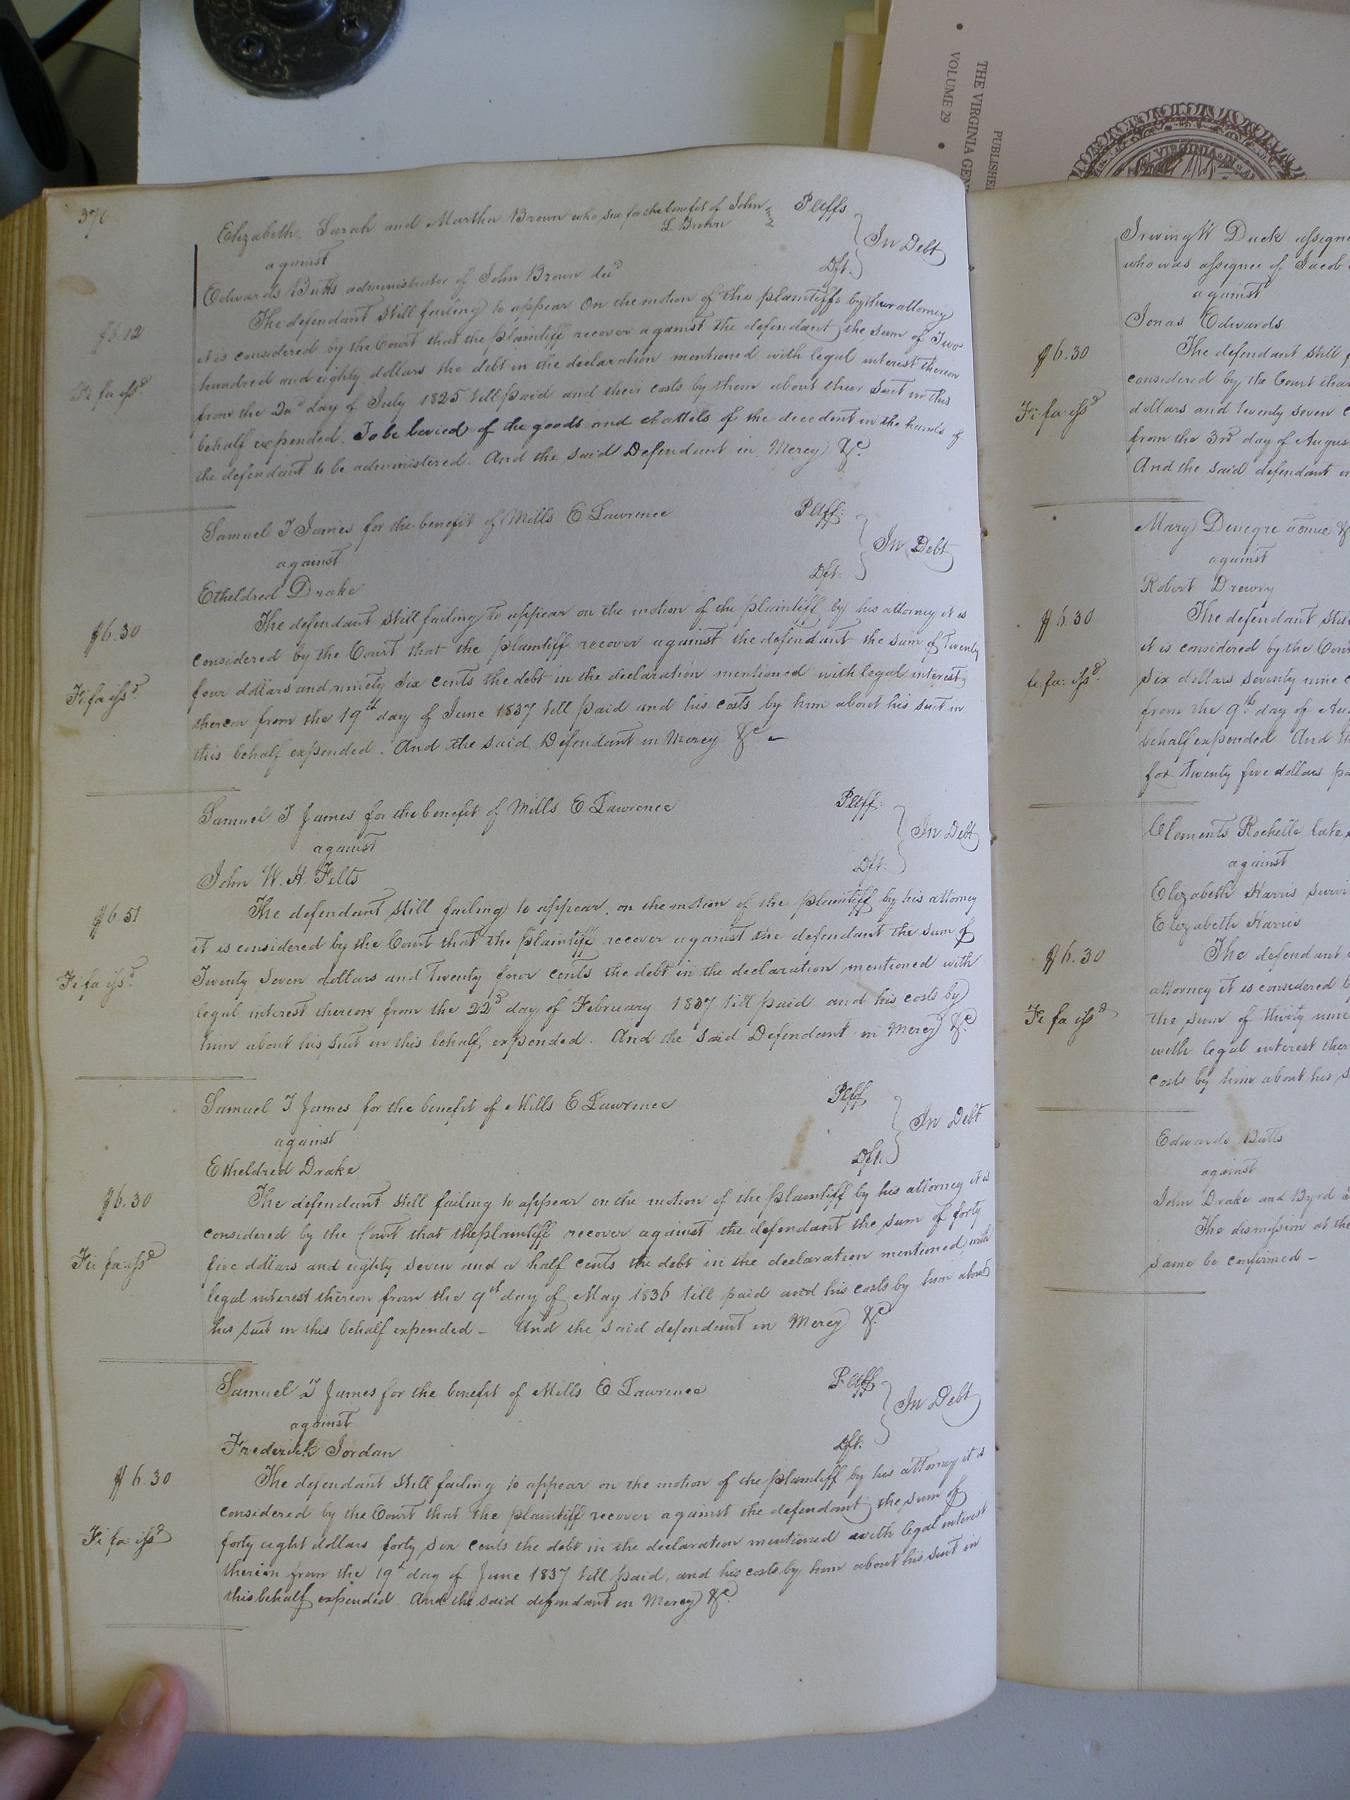 THE VIRGINIA GEN
VOLUME 29
PUBLISHE
VIRGINIA
37
Elizabeth, Sarah and Martha Brown who sue for the benefit of John L. Brown Pltffs
against In Debt
Edwards Butts administrator of John Brown decd Dft.
The defendant still failing to appear On the motion of the plaintiffs by their attorney
$6.12 it is considered by the Court that the plaintiff recover against the defendant the sum of Two
hundred and eighty dollars the debt in the declaration mentioned with legal interest thereon
Fi fa issd from the 2nd day of July 1825 till paid and their costs by them about their suit in this
behalf expended. To be levied of the goods and chattels of the decedent in the hands of
the defendant to be administered. And the said Defendant in Mercy &c.
Samuel T James for the benefit of Mills E Lawrence Pltff.
against In Debt
Etheldred Drake Dft.
The defendant still failing to appear on the motion of the plaintiff by his attorney it is
$6.30 considered by the Court that the plaintiff recover against the defendant the sum of Twenty
four dollars and ninety six cents the debt in the declaration mentioned with legal interest
Fi fa issd thereon from the 19th day of June 1837 till paid and his costs by him about his suit in
this behalf expended. And the said Defendant in Mercy &c. -
Samuel T James for the benefit of Mills E Lawrence Pltff.
against In Debt
John W. H. Felts Dft.
The defendant still failing to appear, on the motion of the plaintiff by his attorney
$6 51 it is considered by the Court that the plaintiff recover against the defendant the sum of
Twenty Seven dollars and Twenty four cents the debt in the declaration mentioned with
Fi fa issd legal interest thereon from the 22d day of February 1837 till paid and his costs by
him about his suit in this behalf expended. And the said Defendant in Mercy &c
Samuel T James for the benefit of Mills E Lawrence Pltff
against In Debt
Etheldred Drake Dft.
The defendant still failing to appear on the motion of the plaintiff by his attorney it is
$6.30 considered by the Court that the plaintiff recover against the defendant the sum of forty
five dollars and eighty seven and a half cents the debt in the declaration mentioned with
Fi fa issd legal interest thereon from the 9th day of May 1836 till paid and his costs by him about
his suit in this behalf expended - And the said defendant in Mercy &c
Samuel T James for the benefit of Mills E Lawrence Pltff
against In Debt
Frederick Jordan Dft.
The defendant still failing to appear on the motion of the plaintiff by his attorney it is
$6.30 considered by the Court that the plaintiff recover against the defendant the sum of
forty eight dollars forty six cents the debt in the declaration mentioned with legal interest
Fi fa issd thereon from the 19th day of June 1837 till paid, and his costs by him about his suit in
this behalf expended And the said defendant in Mercy &c.
Irving W Duck assigne
who was assignee of Jacob
against
Jonas Edwards
$6.30 The defendant still f
considered by the Court that
Fi fa issd dollars and twenty seven c
from the 3rd day of Augus
And the said defendant in
Mary Denegre admx &
against
Robert Drewry
$6.30 The defendant still
it is considered by the Cour
fi. fa. issd. six dollars seventy nine c
from the 9th day of Au
behalf expended And th
for Twenty five dollars pa
Clements Rochelle late
against
Elizabeth Harris survi
Elizabeth Harris
$6.30 The defendant
attorney it is considered b
the sum of thirty nine
Fi fa issd with legal interest ther
costs by him about his s
Edwards Butts
against
John Drake and Byrd
The dismission at the
same be confirmed -